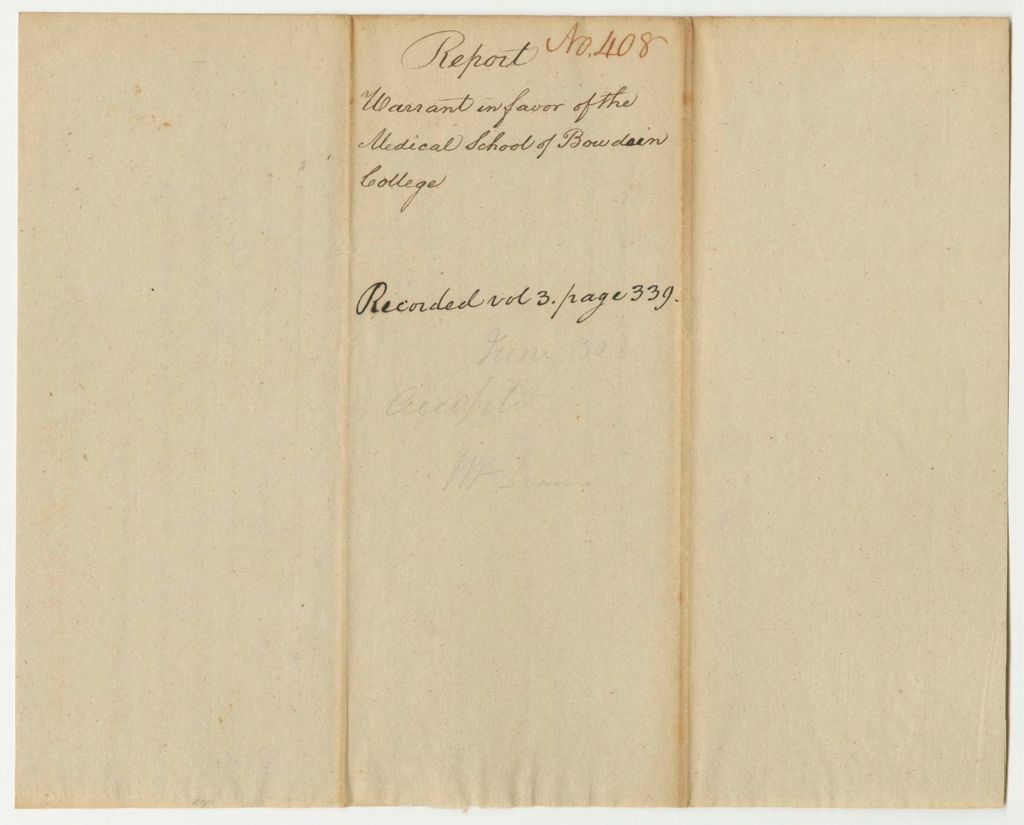 Report No. 408
Warrant in favor of the
Medical School of Bowdoin
College
Recorded vol 3. page 339.
June 30
Accepted